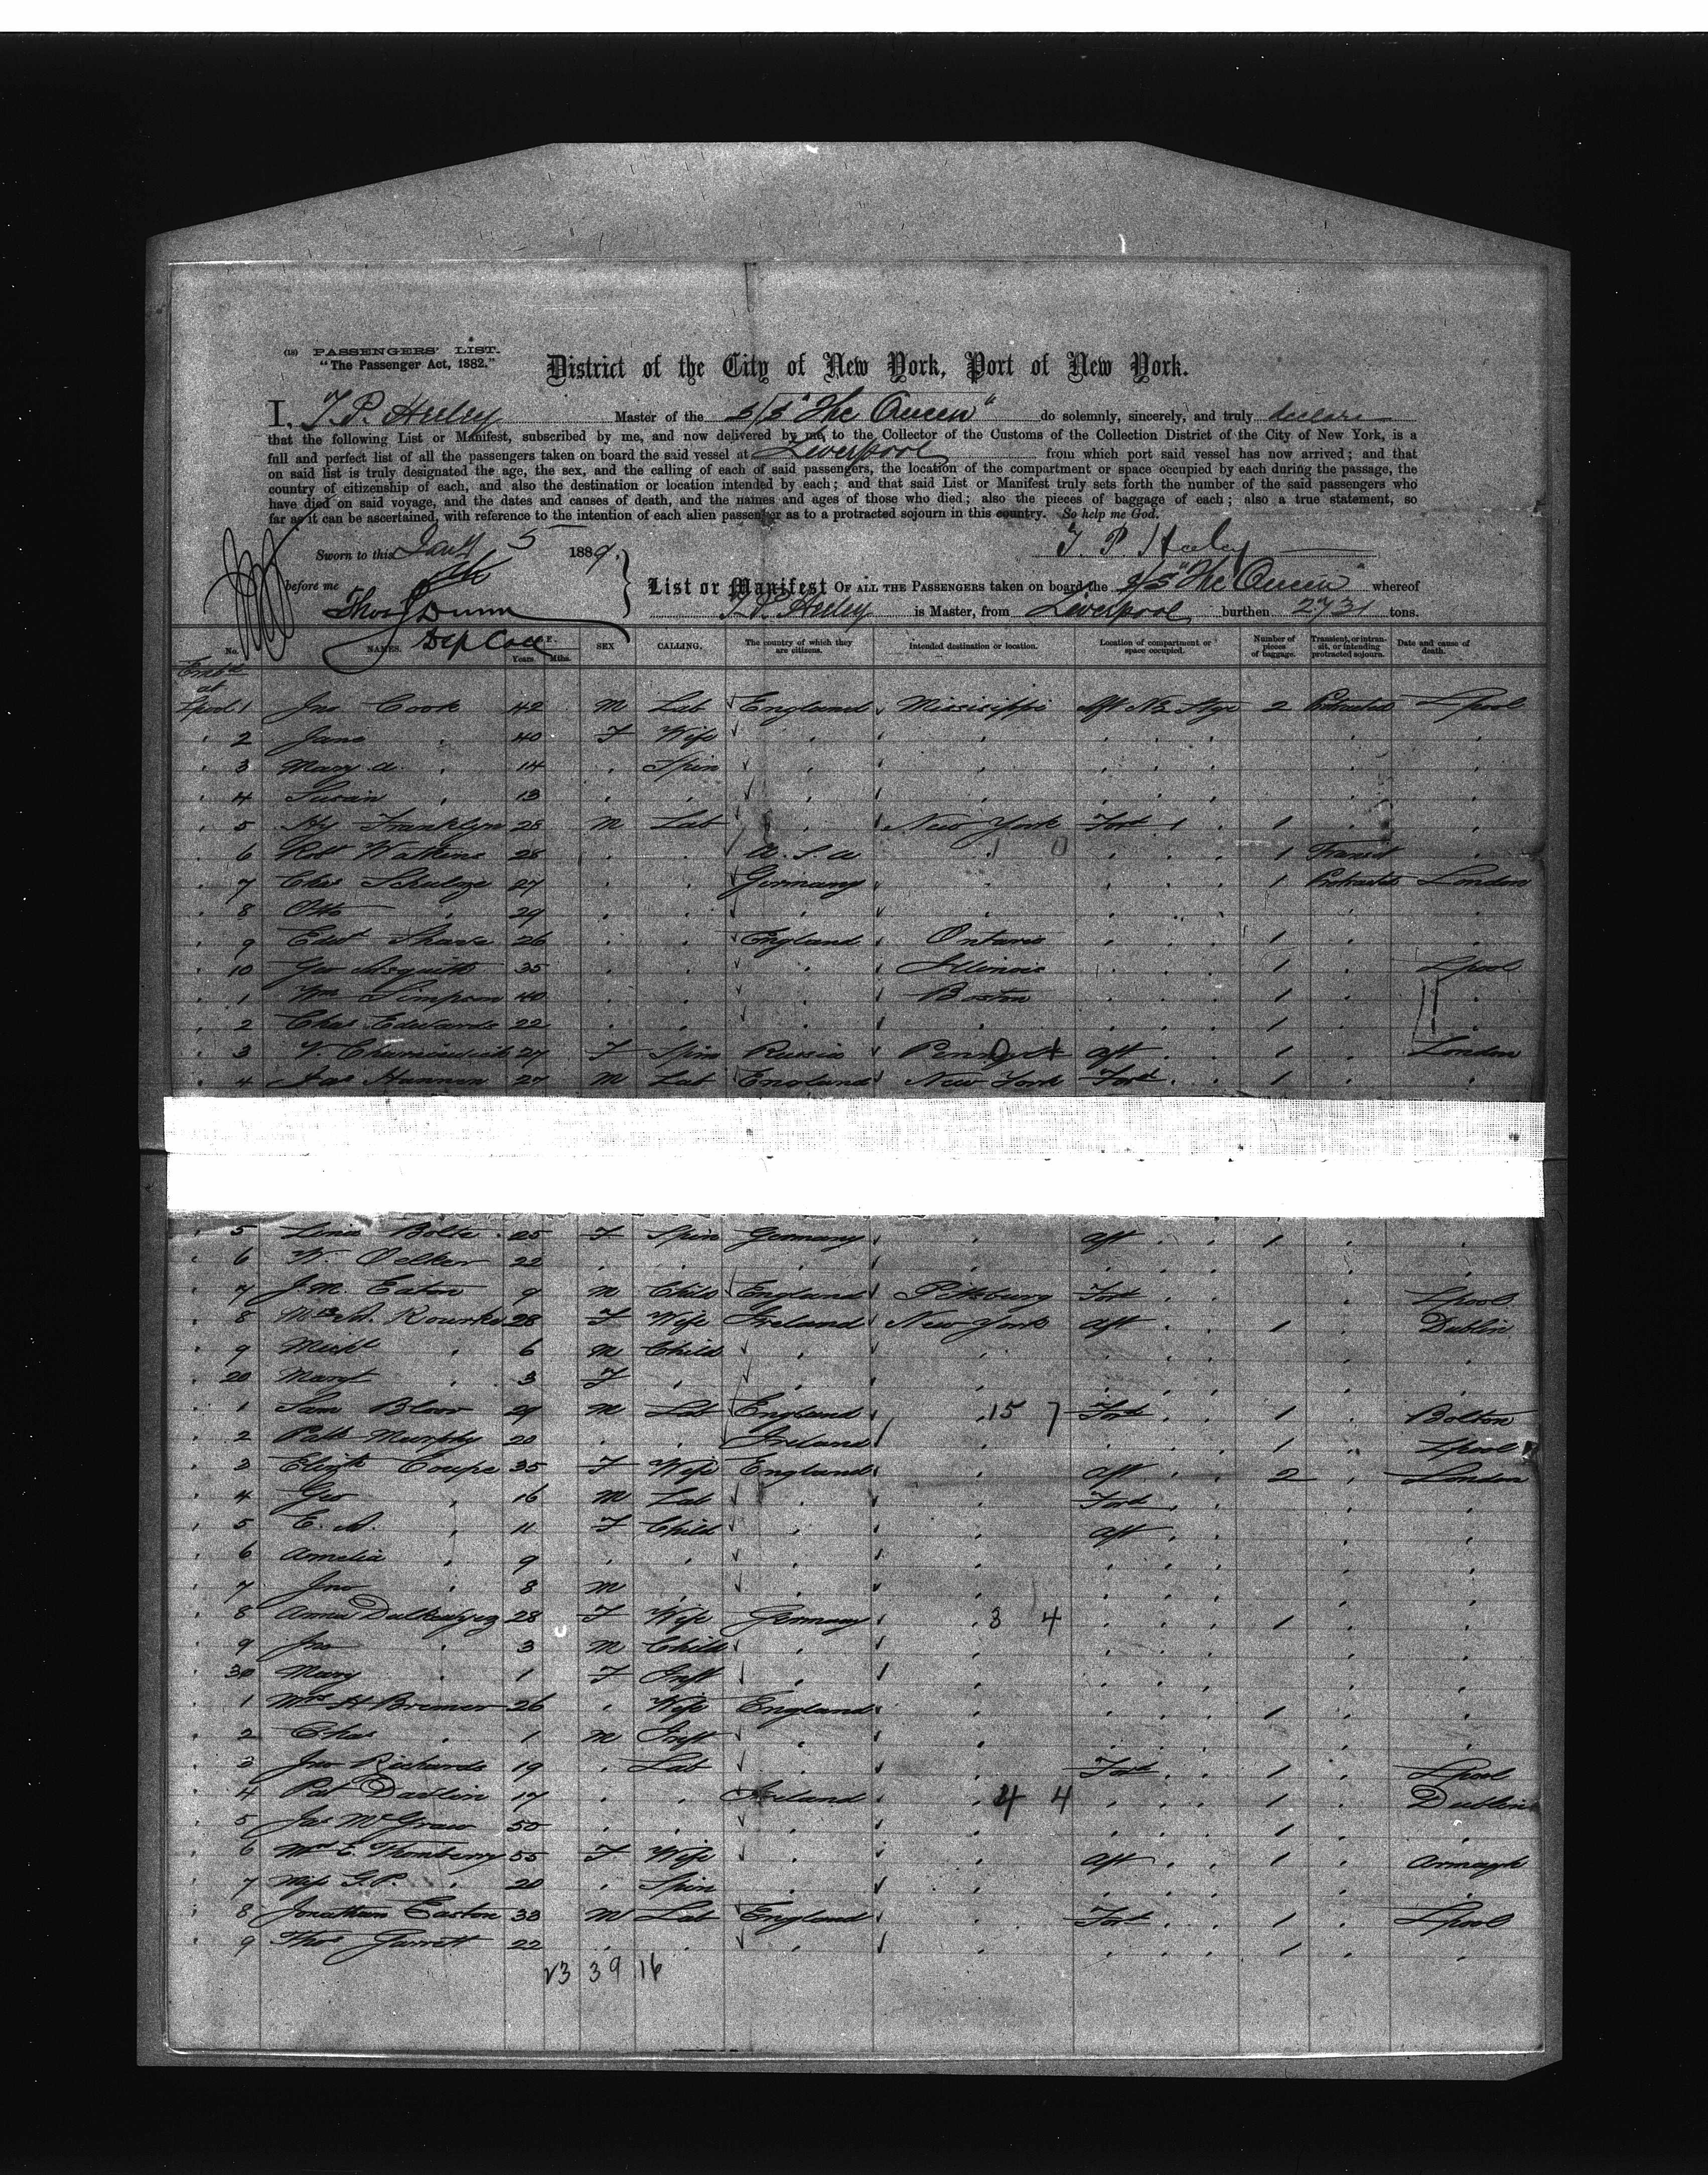 (18) PASSENGERS' LIST.
"The Passenger Act, 1882."
District of the City of New York, Port of New York.
I, T. P. Heeley Master of the s/s "The Queen" do solemnly, sincerely, and truly declare
that the following List or Manifest, subscribed by me, and now delivered by me, to the Collector of the Customs of the Collection District of the City of New York, is a
full and perfect list of all the passengers taken on board the said vessel at Liverpool from which port said vessel has now arrived; and that
on said list is truly designated the age, the sex, and the calling of each of said passengers, the location of the compartment or space occupied by each during the passage, the
country of citizenship of each, and also the destination or location intended by each; and that said List or Manifest truly sets forth the number of the said passengers who
have died on said voyage, and the dates and causes of death, and the names and ages of those who died; also the pieces of baggage of each; also a true statement, so
far as it can be ascertained, with reference to the intention of each alien passenger as to a protracted sojourn in this country. So help me God.
Sworn to this Jany 5 1889. T. P. Heeley
before me
Thos J Dunn
Dep Coll
List or Manifest OF ALL THE PASSENGERS taken on board the s/s "The Queen" whereof
T. P. Heeley is Master, from Liverpool burthen 2731 tons.
No. NAMES. Years Mths. SEX CALLING. The country of which they are citizens. Intended destination or location. Location of compartment or space occupied. Number of pieces of baggage. Transient, or in transit, or intending protracted sojourn. Date and cause of death.
Embd at
Lpool 1 Jno Cook 42 M Lab England Missisippi Aft 2 Protracted Lpool
" 2 Jane " 40 F Wife " " " " "
" 3 Mary A. " 14 " Spin " " " " "
" 4 Susan " 13 " " " " " " "
" 5 Hy Franklyn 28 M Lab " New York Ford 1 " 1 " "
" 6 Robt Watkins 28 " " U.S.A " " 1 Transit "
" 7 Chas Schulze 27 " " Germany " " 1 Protracted London
" 8 Otto " 29 " " " " " " "
" 9 Edwd Share 26 " " England Ontario " 1 " "
" 10 Geo Asquith 35 " " " Illinois " 1 " Lpool
" 1 Wm Simpson 40 " " " Boston " 1 " "
" 2 Chas Edwards 22 " " " " " 1 " "
" 3 27 F Spin Russia Aft " 1 " London
" 4 Jas Hannon 27 M Lab England New York Ford " 1 " "
" 5 Lina Bolte 25 F Spin Germany " Aft " 1 " "
" 6 W. Oelker 22 " " " " " " "
" 7 J.M. Eaton 9 M Child England Pittsburg Ford " " Lpool
" 8 Mrs A. Rourke 28 F Wife Ireland New York Aft " 1 " Dublin
" 9 Michl " 6 M Child " " " " "
" 20 Margt " 3 F " " " " " "
" 1 Sam Bloor 29 M Lab England " 15 7 Ford " 1 " Bolton
" 2 Patk Murphy 20 " " Ireland " " 1 " Lpool
" 3 Elizth Coupe 35 F Wife England " Aft " 2 " London
" 4 Geo " 16 M Lab " " Ford " " "
" 5 E. A. " 11 F Child " " Aft " " "
" 6 Amelia " 9 " " " " " " "
" 7 Jno " 8 M " " " " "
" 8 Anna 28 F Wife Germany " 8 4 " 1 " "
" 9 Jno " 3 M Child " " " " "
" 30 Mary " 1 F Inft " " " " "
" 1 Mrs H Bremer 26 " Wife England " " 1 " "
" 2 Chas " 1 M Inft " " " " "
" 3 Jno Richards 19 " Lab " " Ford " 1 " Lpool
" 4 Pat 17 " " Ireland " 4 4 " 1 " Dublin
" 5 Jas McGraw 50 " " " " " 1 " "
" 6 Mrs E. Thornberry 55 F Wife " " Aft " 1 " Armagh
" 7 Miss G.P. " 20 " Spin " " " " "
" 8 Jonathan Easton 33 M Lab England " Ford " 1 " Lpool
" 9 Thos Garrett 22 " " " " " 1 " "
23 39 16